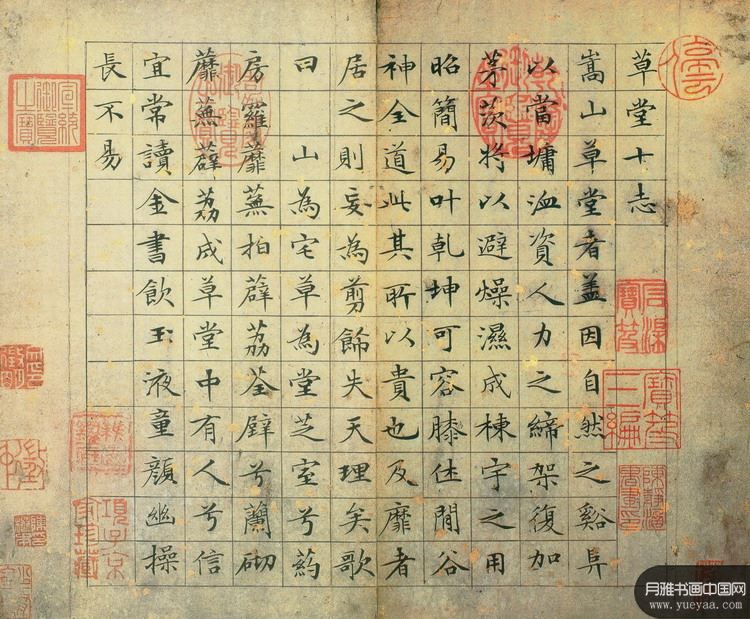 草堂十志
嵩山草堂者盖因自然之谿阜
以當墉洫資人力之締架復加
茅茨将以避燥濕成棟宇之用
昭簡易叶乹坤可容膝休閒谷
神全道此其所以貴也及靡者
居之則妄為剪餙失天理矣歌
曰 山為宅草為堂芝室兮葯
房羅蘼蕪拍薜荔荃壁兮蘭砌
蘼蕪薜荔成草堂中有人兮信
宜常讀金書飲玉液童顔幽操
長不易
宣統御覽之寶
項子京家珍藏
月雅书画中国网
www.yueyaa.com